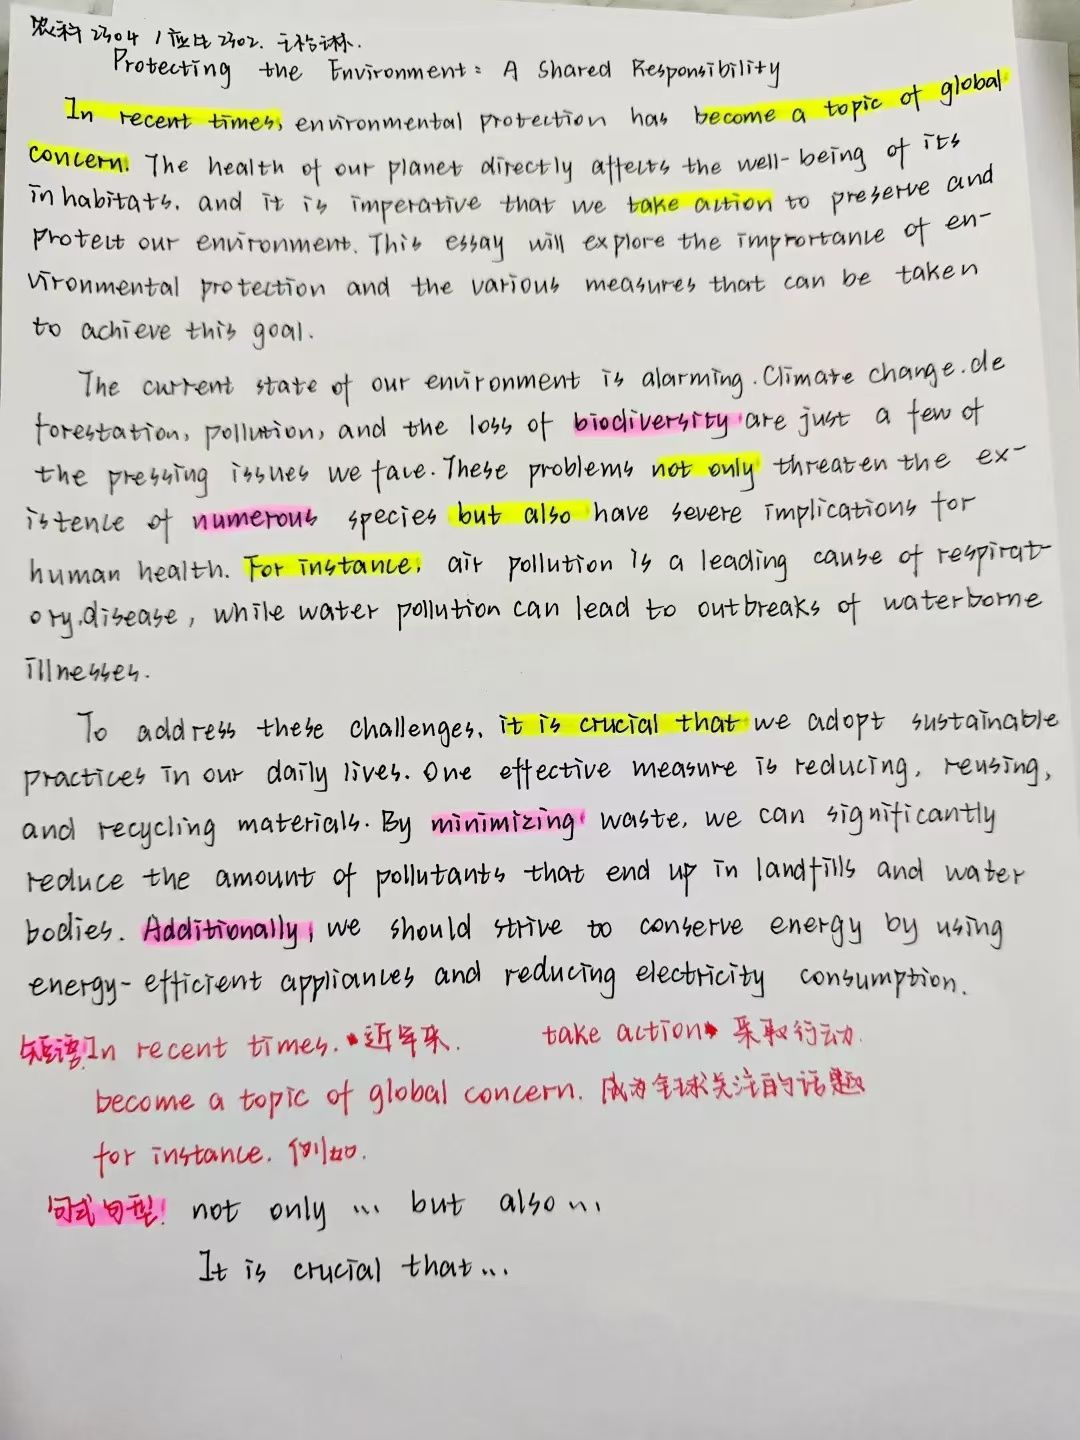 农科2304 / 应化2302.
Protecting the Environment: A Shared Responsibility
In recent times, environmental protection has become a topic of global
concern. The health of our planet directly affects the well-being of its
inhabitats, and it is imperative that we take action to preserve and
protect our environment. This essay will explore the imprortance of en-
vironmental protection and the various measures that can be taken
to achieve this goal.
The current state of our environment is alarming. Climate change. de
forestation, pollution, and the loss of biodiversity are just a few of
the pressing issues we face. These problems not only threaten the ex-
istence of numerous species but also have severe implications for
human health. For instance, air pollution is a leading cause of respirat-
ory disease, while water pollution can lead to outbreaks of waterborne
illnesses.
To address these challenges, it is crucial that we adopt sustainable
practices in our daily lives. One effective measure is reducing, reusing,
and recycling materials. By minimizing waste, we can significantly
reduce the amount of pollutants that end up in landfills and water
bodies. Additionally, we should strive to conserve energy by using
energy-efficient appliances and reducing electricity consumption.
短语: In recent times. 近年来. take action 采取行动.
become a topic of global concern. 成为全球关注的话题
for instance. 例如.
句式句型: not only ... but also ...
It is crucial that...